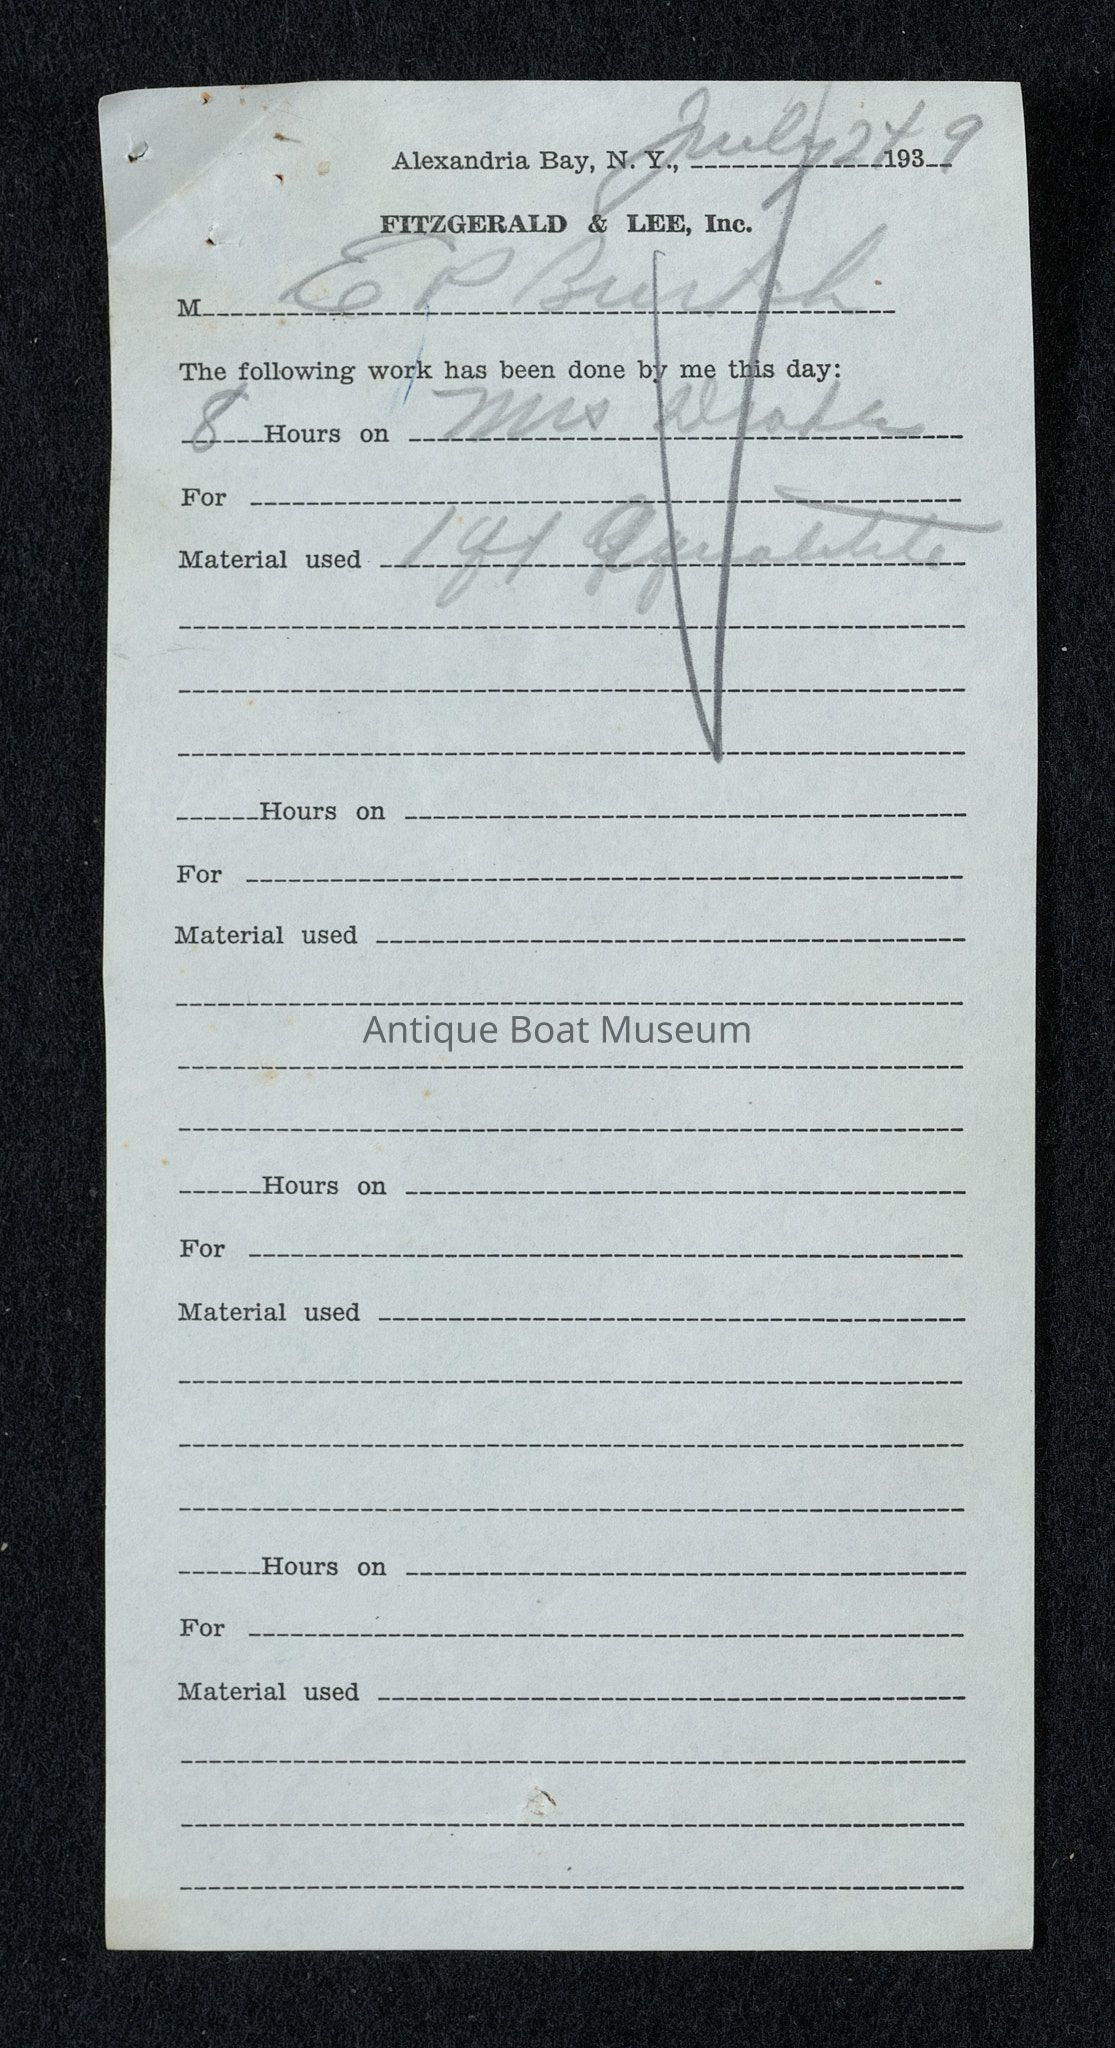 Alexandria Bay, N. Y., July 24 1939
FITZGERALD & LEE, Inc.
M E P Burtch
The following work has been done by me this day:
8 Hours on Mrs
For
Material used 1 qt
Hours on
For
Material used
Antique Boat Museum
Hours on
For
Material used
Hours on
For
Material used